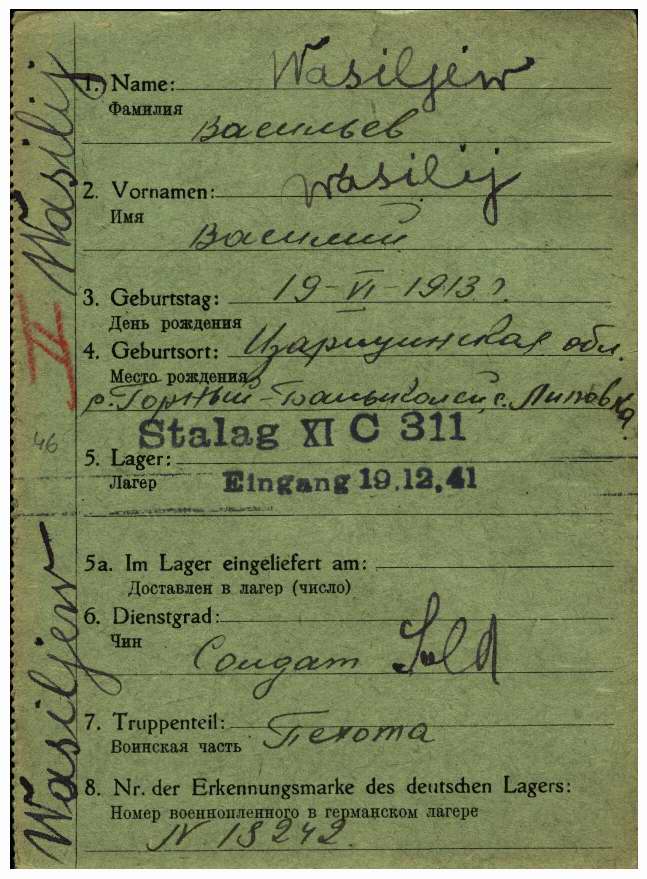 1. Name: Wasiljew
Фамилия
Васильев
2. Vornamen: Wasilij
Имя
Василий
3. Geburtstag: 19-VI-1913 г.
День рождения
4. Geburtsort: Царицинская обл.
Место рождения
р. Горный- с. Липовка.
Stalag XI C 311
5. Lager:
Лагер
Eingang 19.12.41
5a. Im Lager eingeliefert am:
Доставлен в лагер (число)
6. Dienstgrad:
Чин
Солдат Sold
7. Truppenteil: Пехота
Воинская часть
8. Nr. der Erkennungsmarke des deutschen Lagers:
Номер военнопленного в германском лагере
N 18242.
Wasiljew Wasilij
II
46